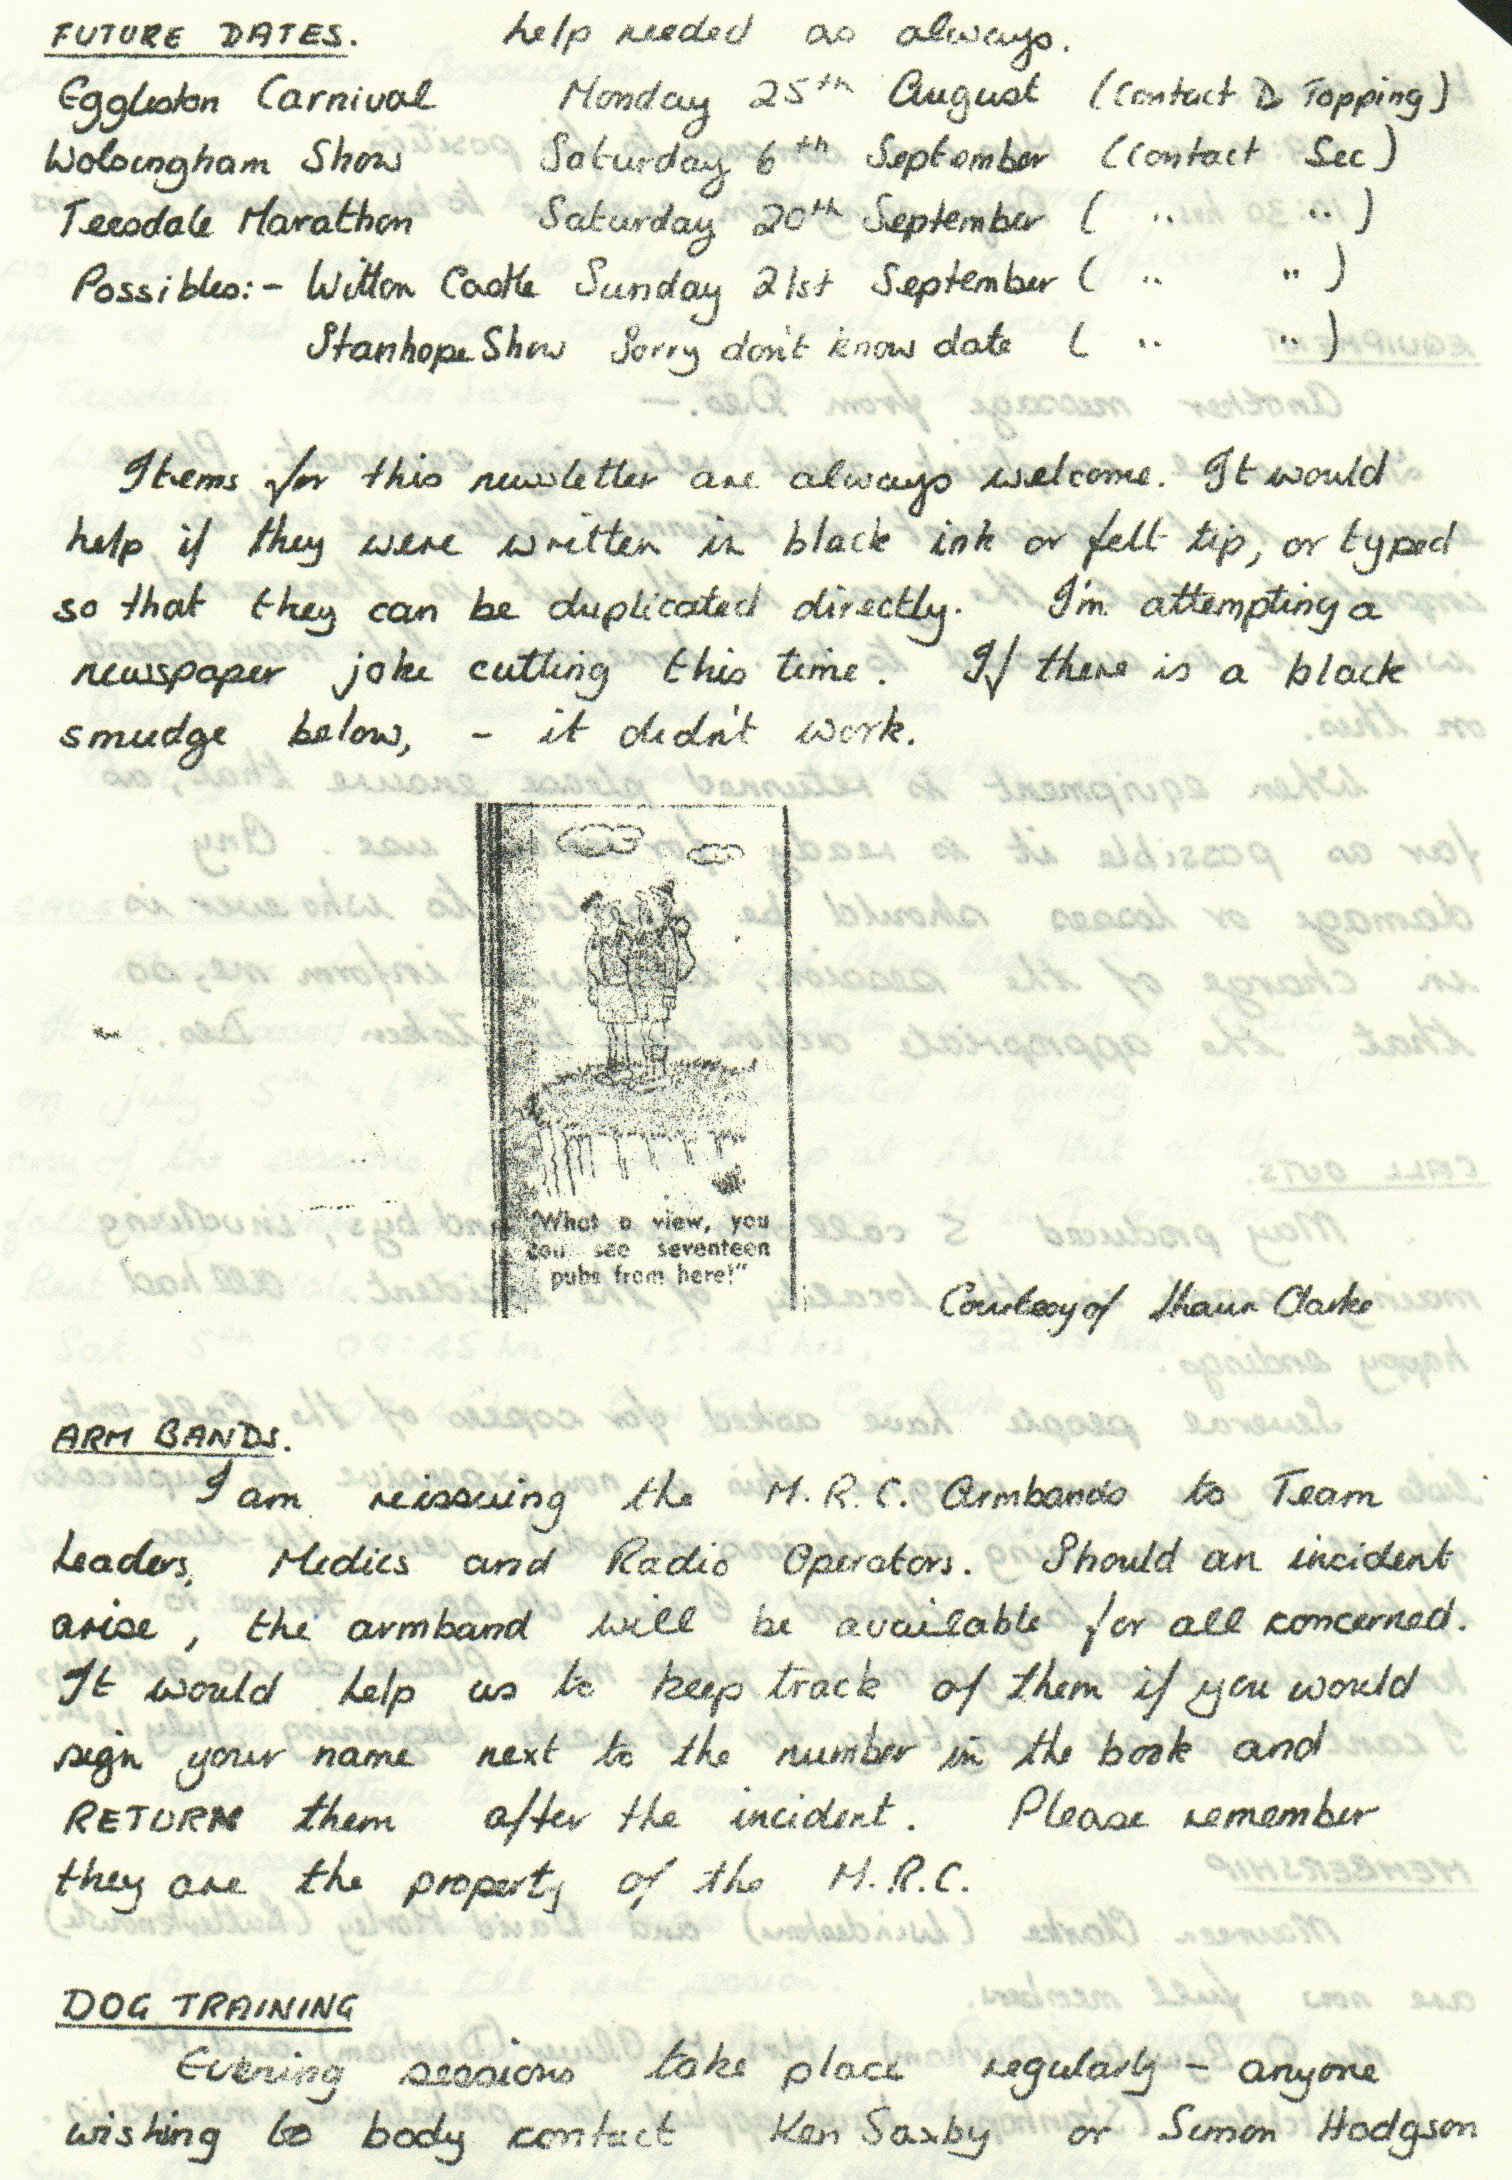 FUTURE DATES. help needed as always.
Eggleston Carnival Monday 25th August (Contact D Topping)
Wolsingham Show Saturday 6th September (Contact Sec)
Teesdale Marathon Saturday 20th September ( " " )
Possibles:- Witton Castle Sunday 21st September ( " " )
Stanhope Show Sorry don't know date ( " " )
Items for this newsletter are always welcome. It would
help if they were written in black ink or felt tip, or typed
so that they can be duplicated directly. I'm attempting a
newspaper joke cutting this time. If there is a black
smudge below, - it didn't work.
"What a view, you
can see seventeen
pubs from here!"
Courtesy of Shaun Clarke
ARM BANDS.
I am reissuing the M.R.C. Armbands to Team
Leaders, Medics and Radio Operators. Should an incident
arise, the armband will be available for all concerned.
It would help us to keep track of them if you would
sign your name next to the number in the book and
RETURN them after the incident. Please remember
they are the property of the M.R.C.
DOG TRAINING
Evening sessions take place regularly - anyone
wishing to body contact Ken Saxby or Simon Hodgson